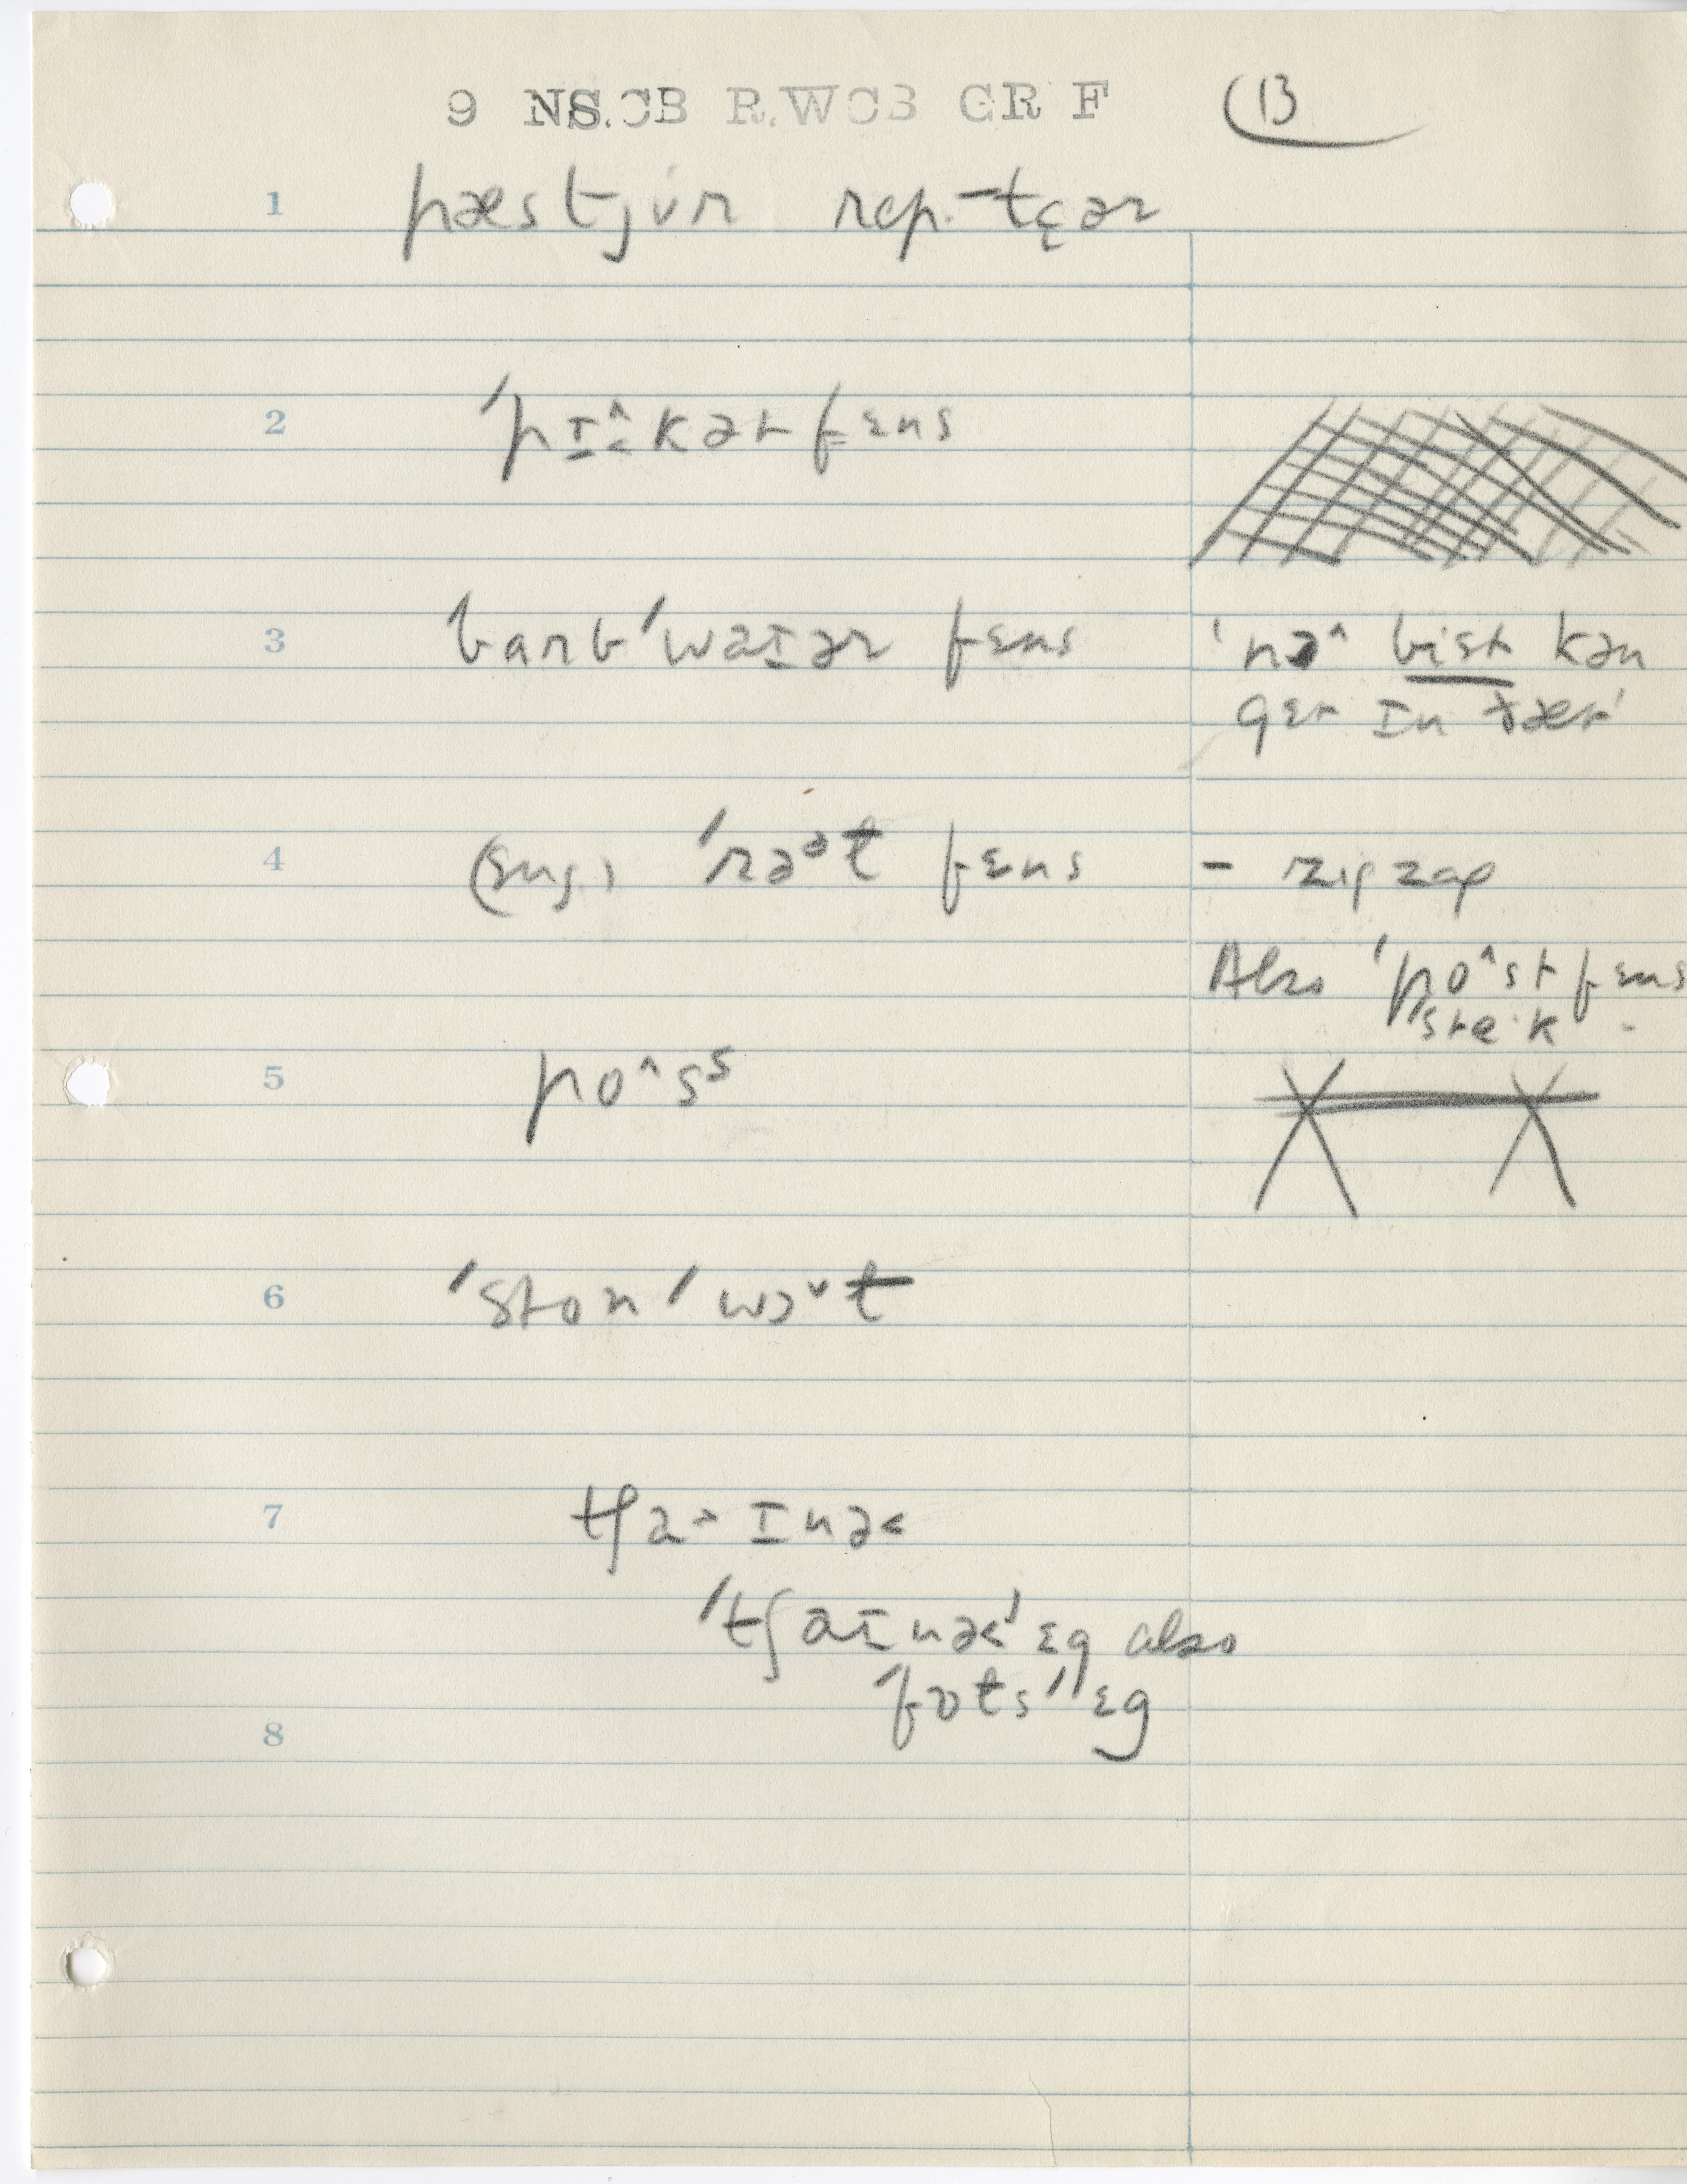 9 NS.CB R.WCB GR F (B
1 pæstjʊr rep. -tʃər
2 ˈpɪ^kət fɛns
3 barbˈwaɪər fɛns ˈnə^ bist kən
gɛt ɪn ðæt'
4 (sug.) ˈrəᵊt fɛns – zigzag
Also ˈpo^st fɛns
ste·k "
5 po^sˢ
6 ˈstonˈwɔᵛt
7 tʃa˃ɪnə˂
ˈtʃaɪnə˂ˈɛg also
ˈfɒtsˈˈɛg
8